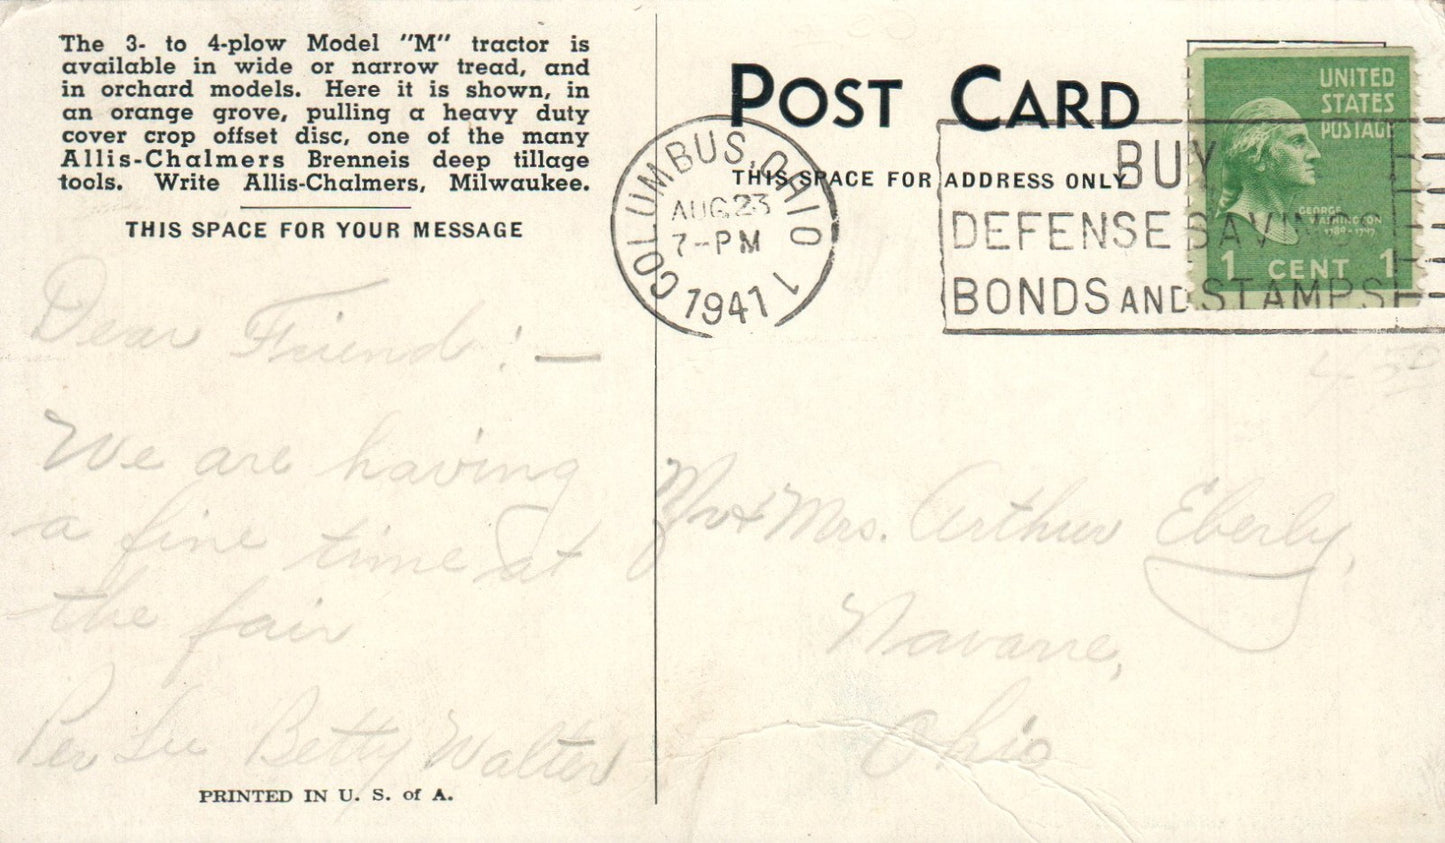 The 3- to 4-plow Model "M" tractor is
available in wide or narrow tread, and
in orchard models. Here it is shown, in
an orange grove, pulling a heavy duty
cover crop offset disc, one of the many
Allis-Chalmers Brenneis deep tillage
tools. Write Allis-Chalmers, Milwaukee.
THIS SPACE FOR YOUR MESSAGE
Dear Friend : —
We are having
a fine time at
the fair
Lee Betty Walter
PRINTED IN U. S. of A.
POST CARD
THIS SPACE FOR ADDRESS ONLY
COLUMBUS, OHIO 1
AUG 23
7-PM
1941
BUY
DEFENSE SAVINGS
BONDS AND STAMPS
UNITED
STATES
POSTAGE
GEORGE
WASHINGTON
1789-1797
1 CENT 1
Mr & Mrs. Arthur Eberly,
Navarre,
Ohio